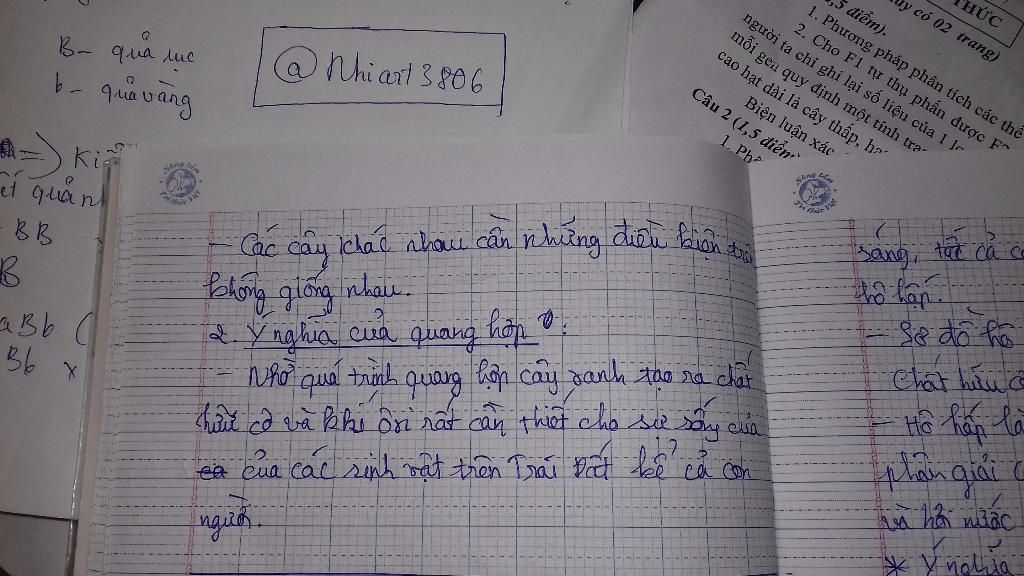 B - quả lục
b - quả vàng
@Nhiart3806
=) Ki
BB
B
aBb (
Bb x
THỨC
có 02 trang)
,5 điểm).
1. Phương pháp phân tích các thế
2. Cho F1 tự thụ phấn được F2
người ta chỉ ghi lại số liệu của 1
mỗi gen quy định một tính trạng
cao hạt dài là cây thấp,
Câu 2 (1,5 điểm)
Biện luận xác
1.
Nâng tầm
Tri thức Việt
- Các cây khác nhau cần những điều kiện
không giống nhau.
2. Ý nghĩa của quang hợp :
- Nhờ quá trình quang hợp cây xanh tạo ra chất
hữu cơ và khí ôxi rất cần thiết cho sự sống của
của các sinh vật trên Trái Đất kể cả con
người.
Nâng tầm
Tri thức Việt
sáng, tất cả
hô hấp.
- Sơ đồ hô
Chất hữu
- Hô hấp là
phân giải
và hơi nước
* Ý nghĩa